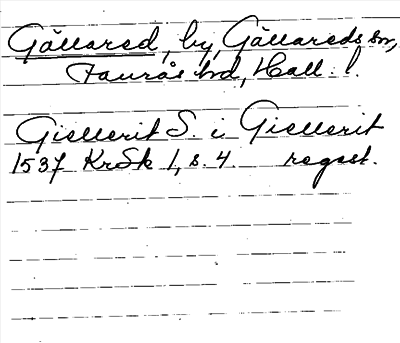 Gällared, by, Gällareds sn,
Faurås hd, Hall. l.
Giellerit S. i Giellerit
1537 KrSk 1, s. 4 regest.